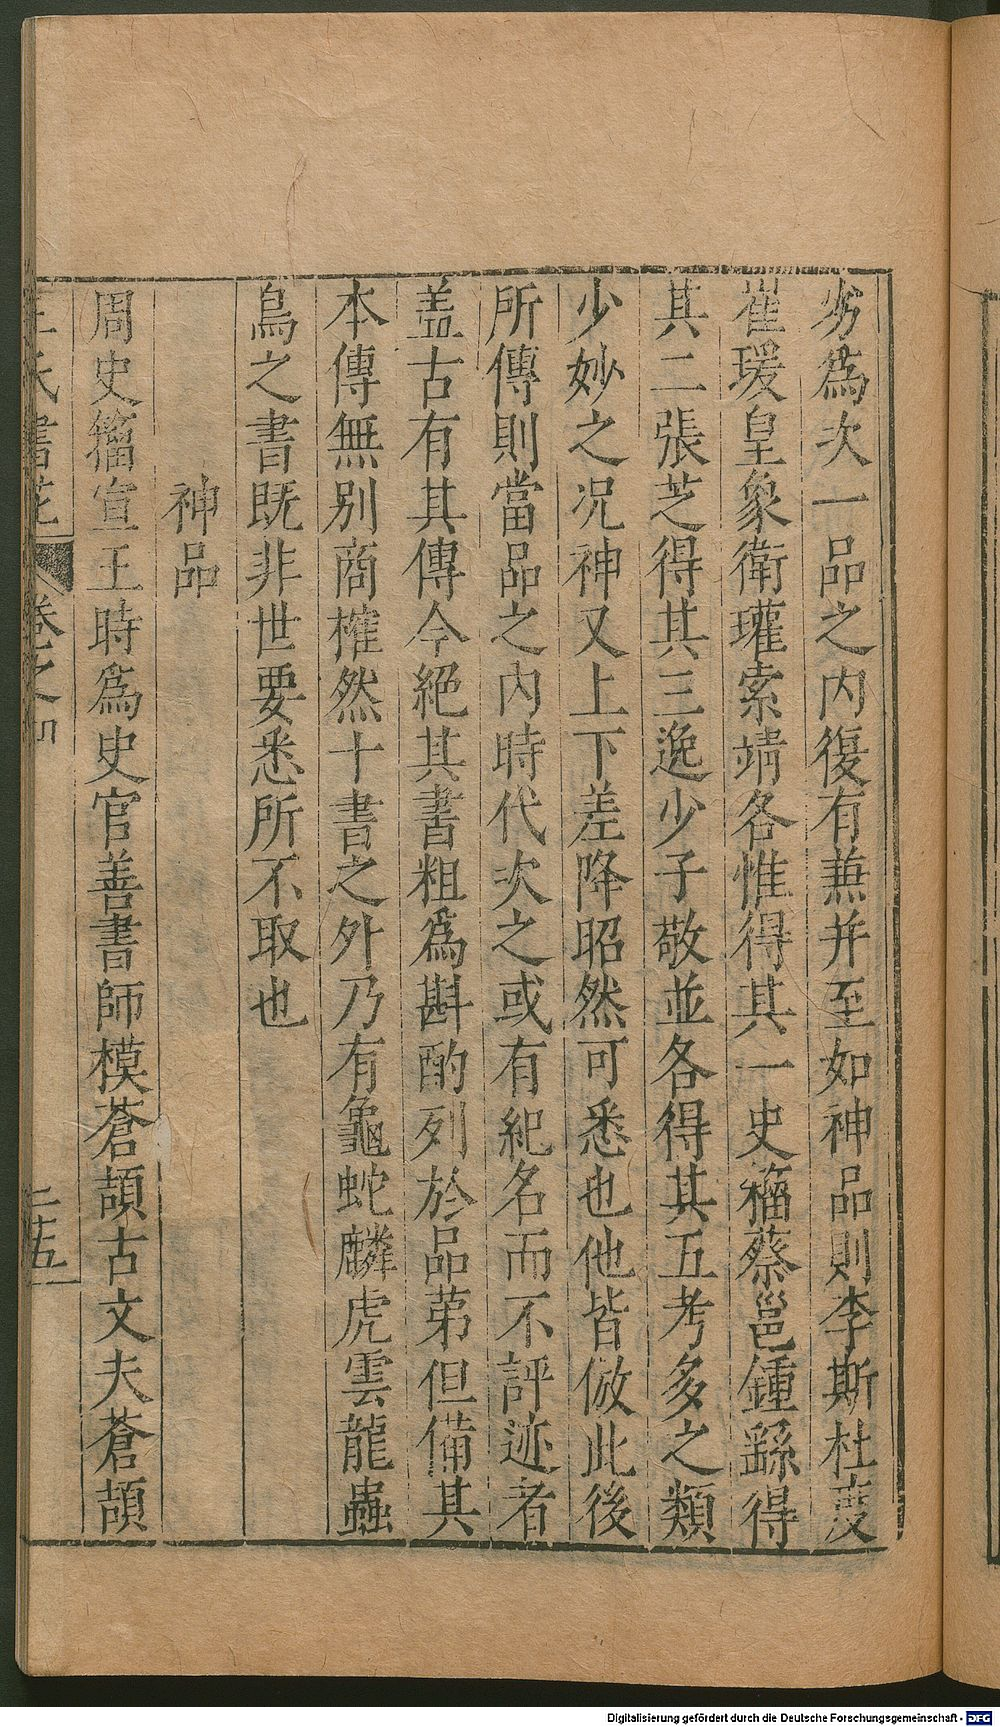 劣為次一品之内復有兼并至如神品則李斯杜度
崔瑗皇象衛瓘索靖各惟得其一史籀蔡邕鍾繇得
其二張芝得其三逸少子敬並各得其五考多之類
少妙之况神又上下差降昭然可悉也他皆倣此後
所傳則當品之内時代次之或有紀名而不評迹者
盖古有其傳今絕其書粗為斟酌列於品第但備其
本傳無别商搉然十書之外乃有龜蛇麟虎雲龍蟲
鳥之書既非世要悉所不取也
神品
周史籀宣王時為史官善書師模蒼頡古文夫蒼頡
王氏書苑 卷之四 二十五
Digitalisierung gefördert durch die Deutsche Forschungsgemeinschaft - DFG